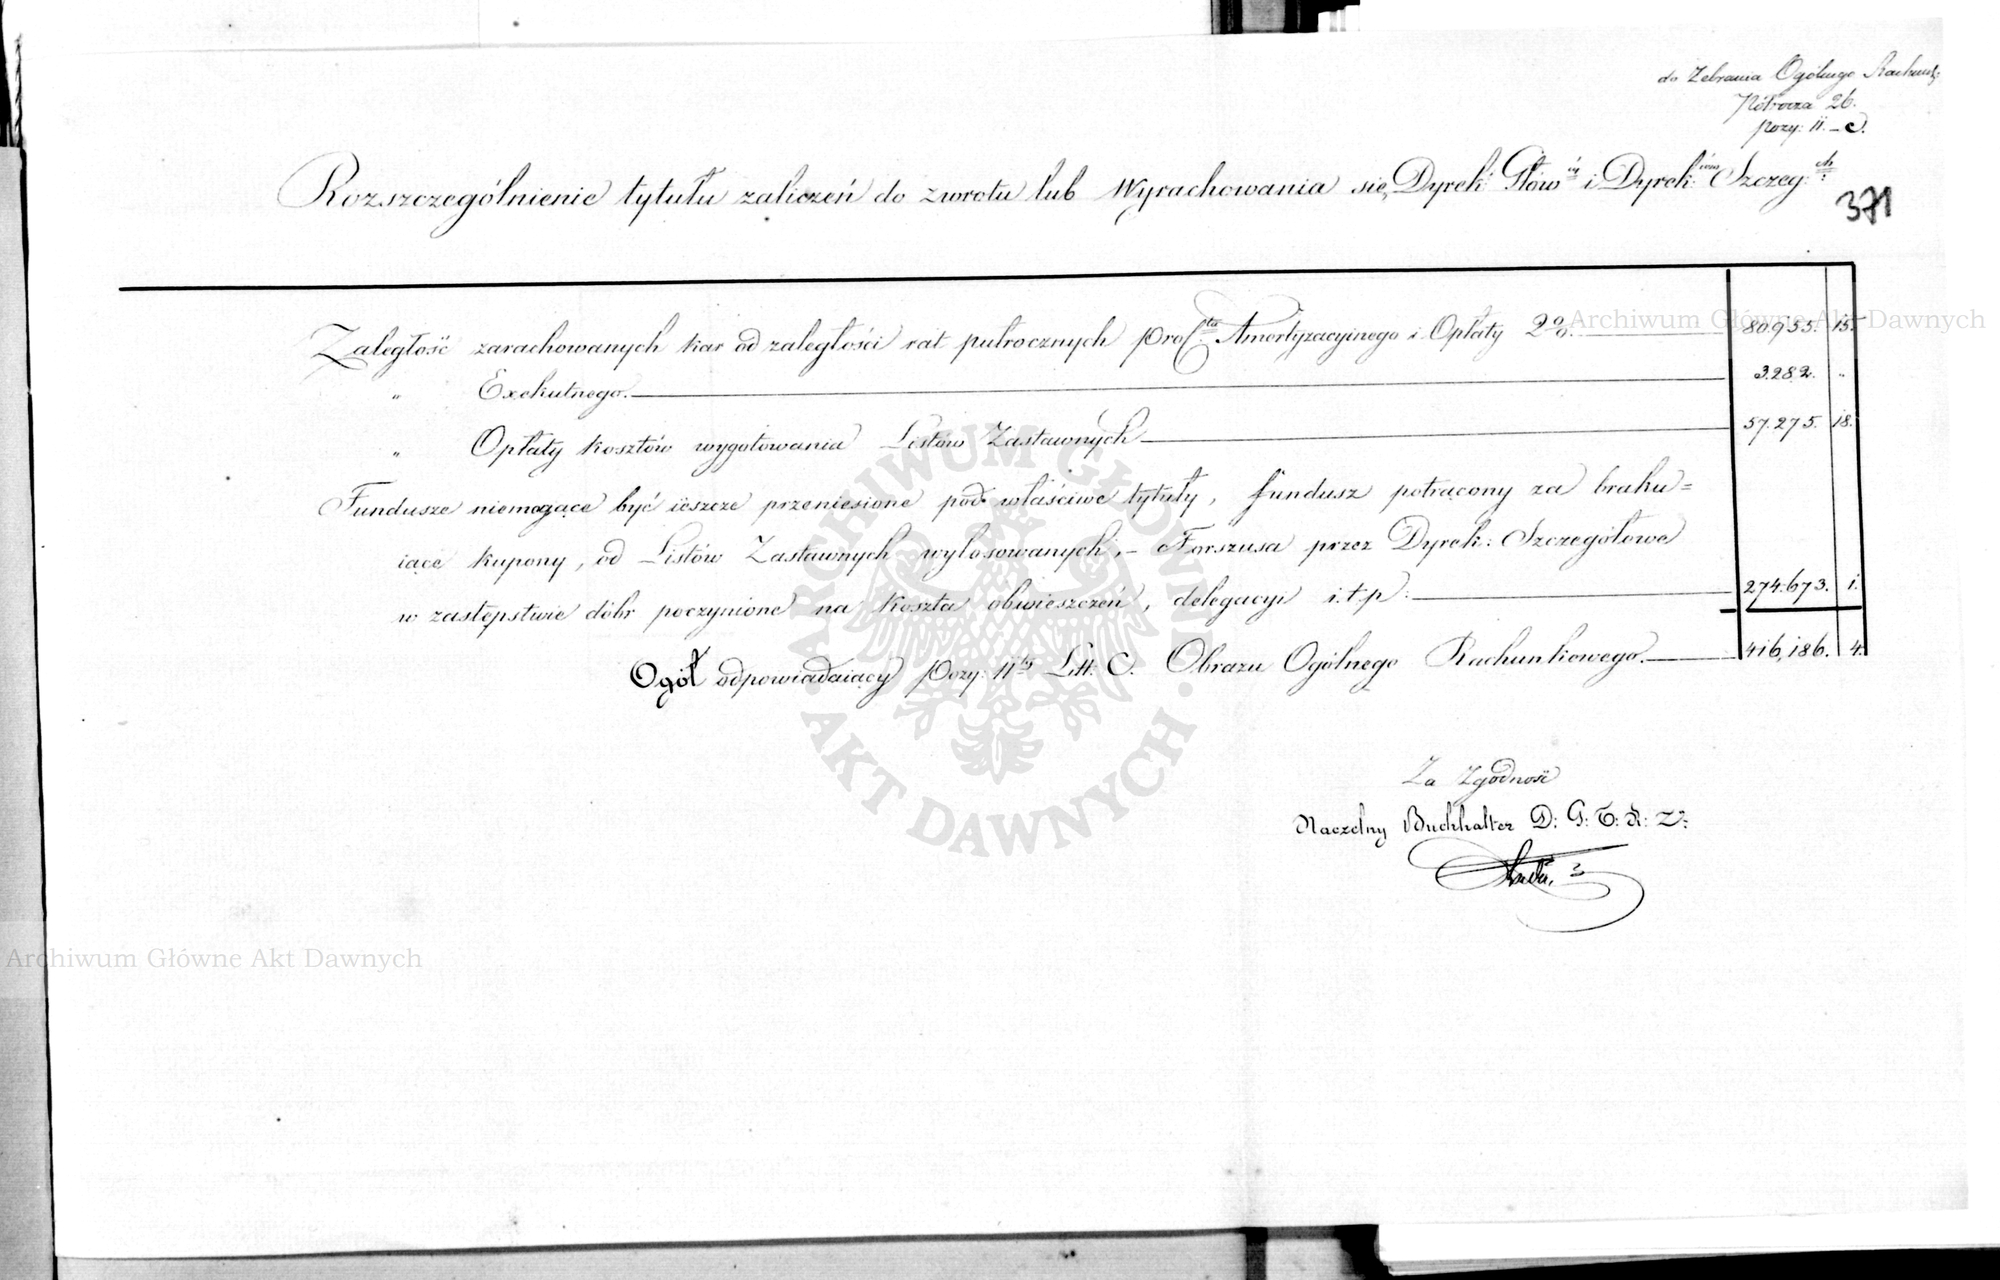 do Zebrania Ogólnego Rachunk:
Półrocza 26.
pozy: 11. – C.
Rozszczególnienie tytułu zaliczeń do zwrotu lub Wyrachowania się, Dyrek: Głównéj i Dyrek:ciów Szczeg:ch
371
Zaległość zarachowanych kar od zaległości rat pułrocznych proc:to Amortyzacyinego i Opłaty 2%. 80.955. 15.
" Exekutnego. 3.282. "
" Opłaty kosztów wygotowania Listów Zastawnych 57.275. 18.
Fundusze niemogące być ieszcze przeniesione pod właściwe tytuły, fundusz potrącony za braku=
iące kupony, od Listów Zastawnych wylosowanych, – Forszusa przez Dyrek: Szczegółowe
w zastępstwie dóbr poczynione na koszta obwieszczeń, delegacyi i.t.p: 274.673. 1.
Ogół odpowiadaiący pozy: 11téj Litt: C. Obrazu Ogólnego Rachunkowego. 416,186. 4.
Za Zgodność
Naczelny Buchhalter D: G: T: K: Z:
Archiwum Główne Akt Dawnych
Archiwum Główne Akt Dawnych
ARCHIWUM GŁÓWNE
AKT DAWNYCH